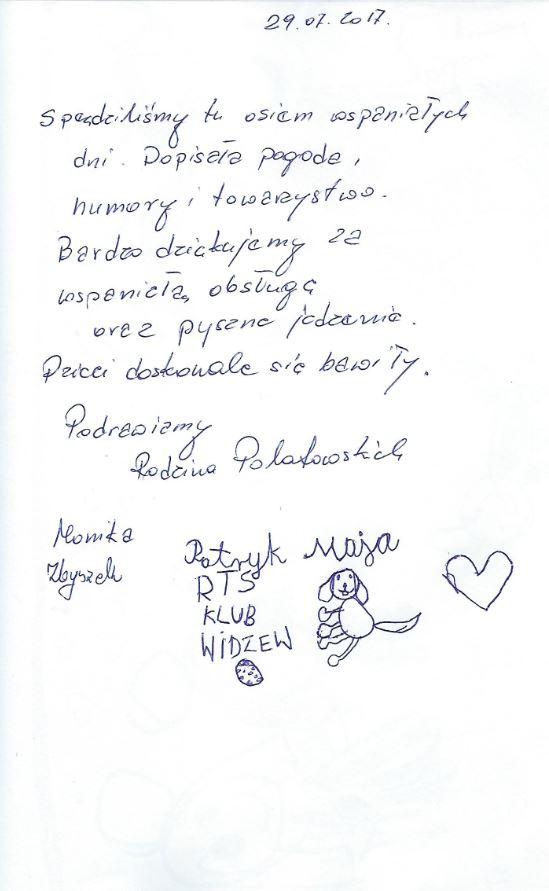 29.07.2017.
Spędziliśmy tu osiem wspaniałych
dni. Dopisała pogoda,
humory i towarzystwo.
Bardzo dziękujemy za
wspaniałą obsługę
oraz pyszne jedzenie.
Dzieci doskonale się bawiły.
Podrawiamy
Rodzina Polatowskich
Monika
Zbyszek
Patryk Maja
RTS
KLUB
WIDZEW